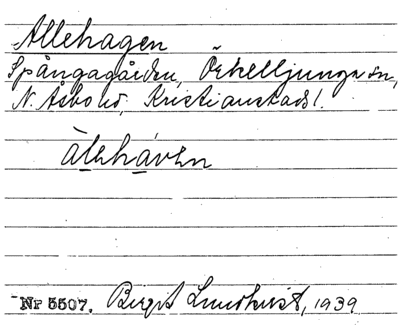 Allehagen
Spångagården, Örkelljunga sn,
N. Åsbo hd, Kristianstads l.
àlehávεn
Nr 5507. Birgit Lundkvist, 1939